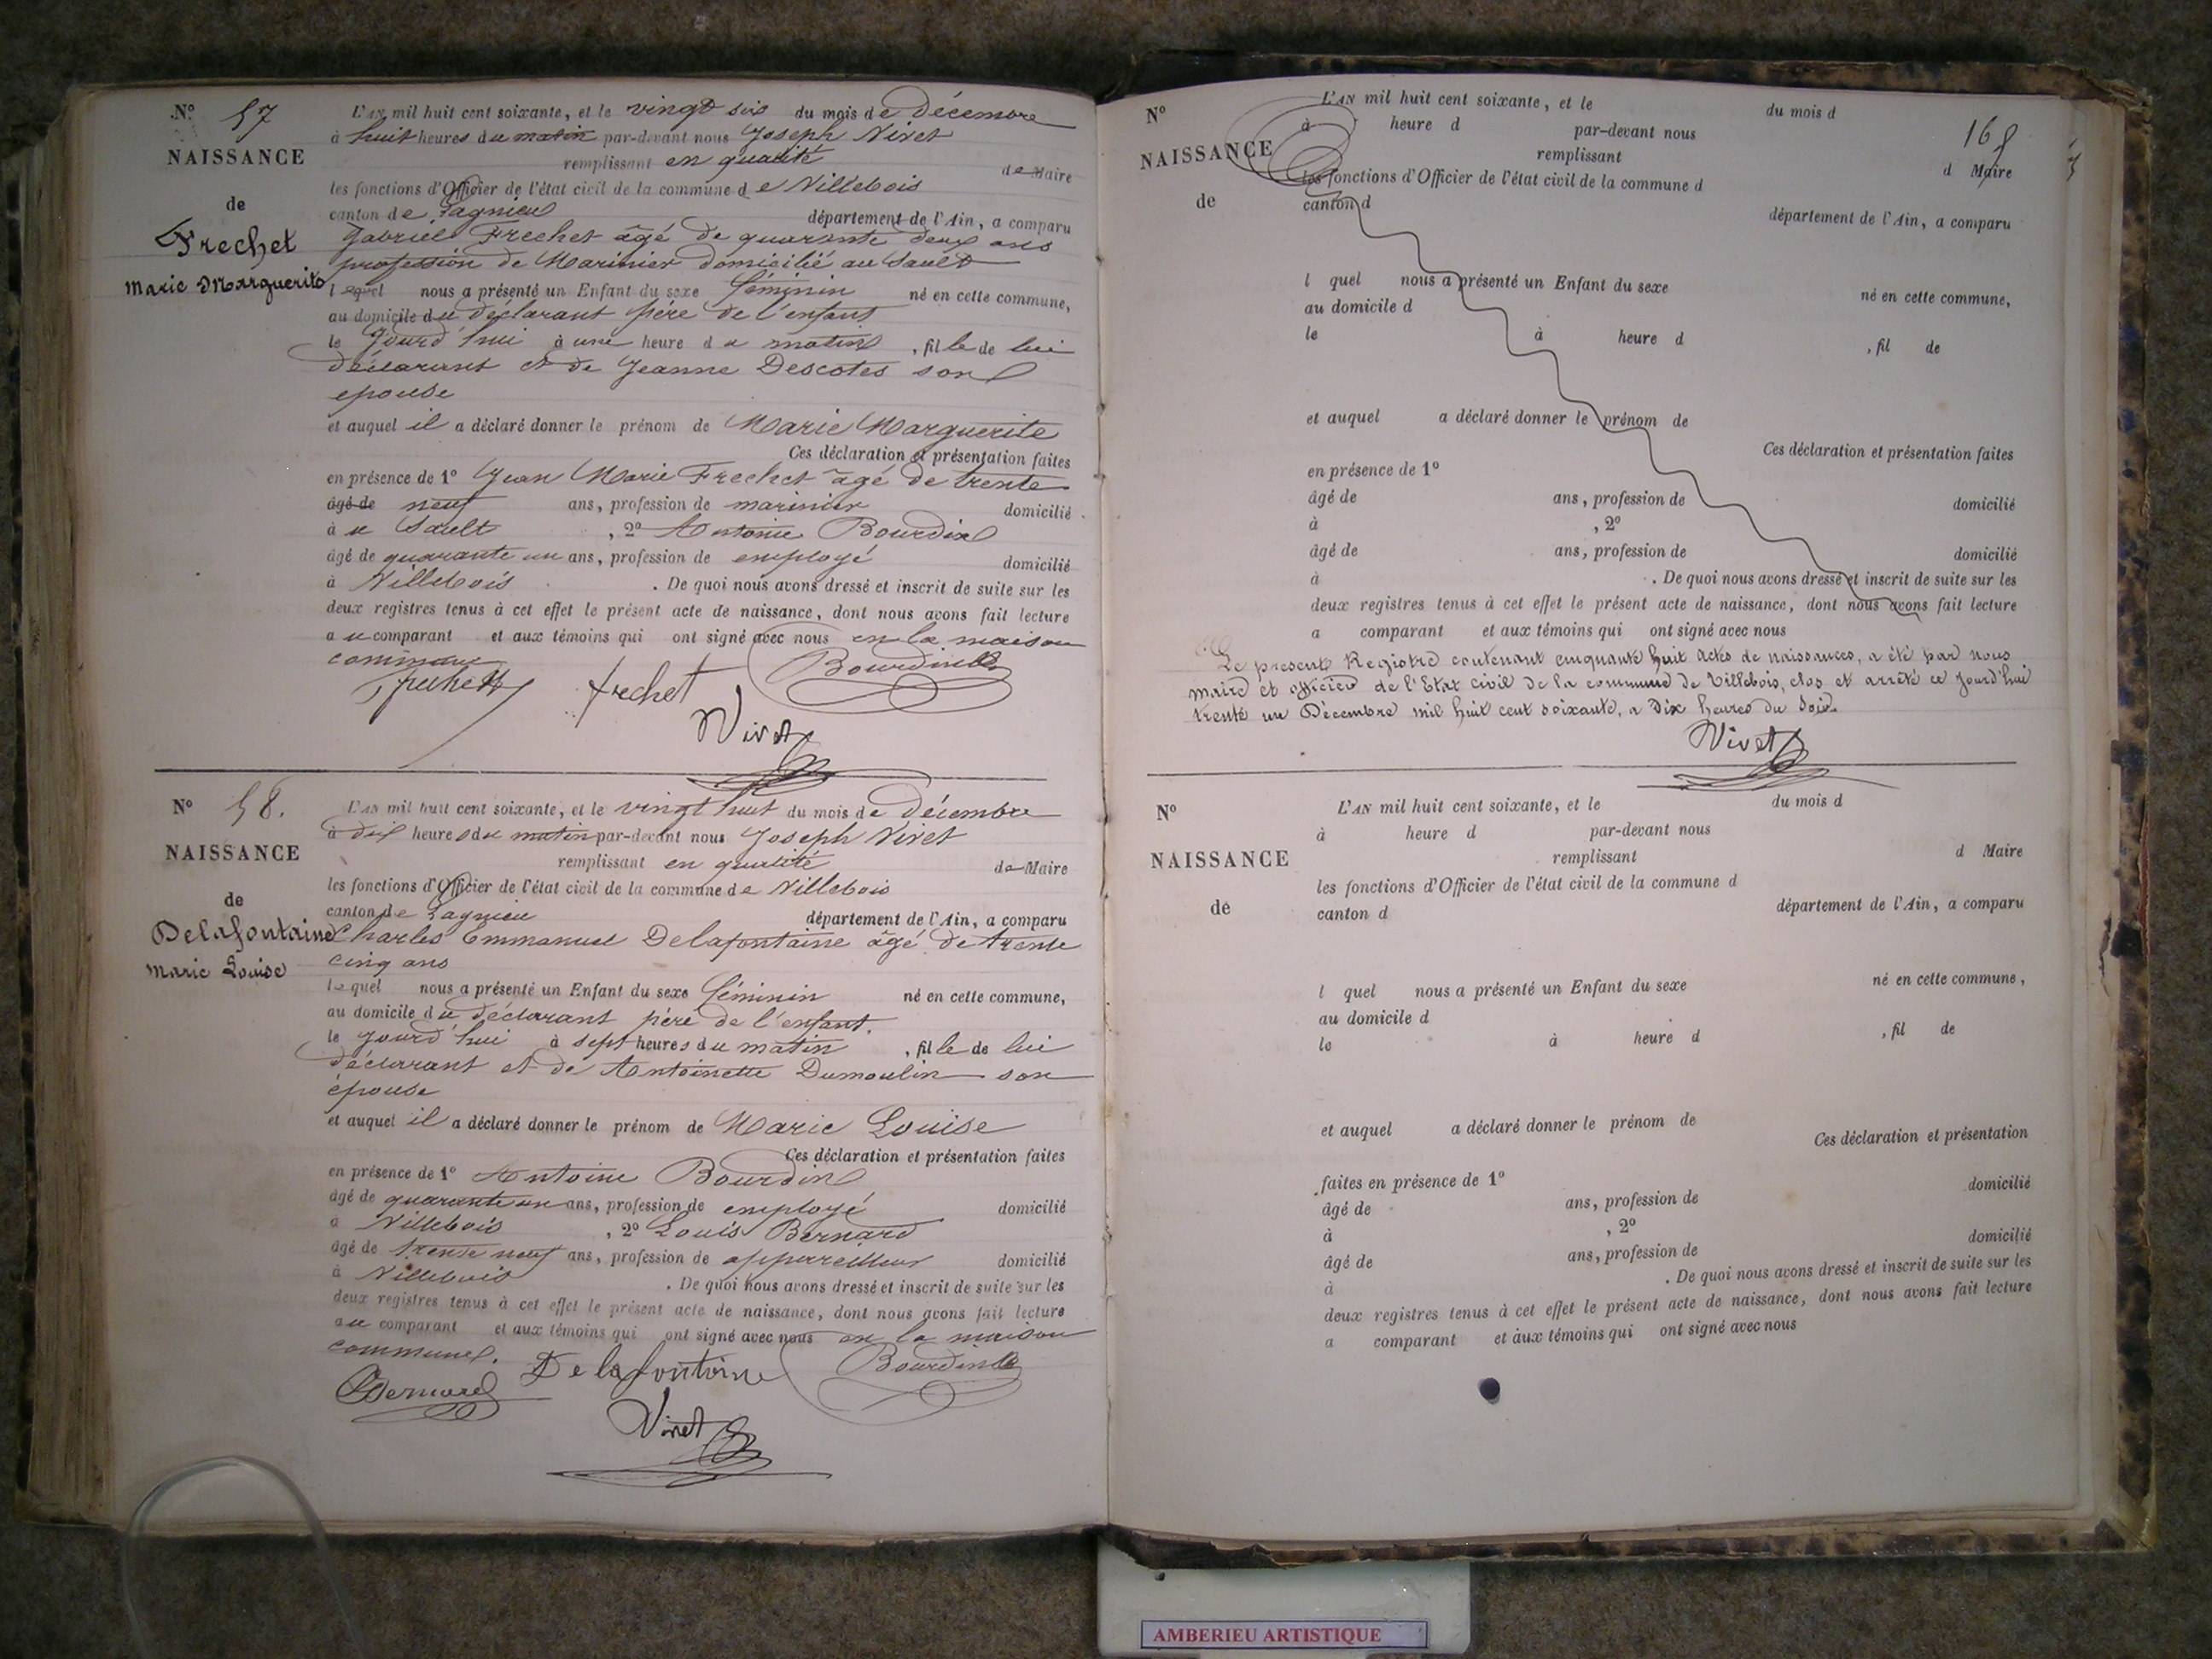 N° 57
NAISSANCE
de
Frechet
Marie Marguerite
L'AN mil huit cent soixante, et le vingt six du mois de Décembre
à huit heures du matin par-devant nous Joseph Vivet
remplissant en qualité de Maire
les fonctions d'Officier de l'état civil de la commune de Villebois
canton de Lagnieu département de l'Ain, a comparu
Gabriel Frechet âgé de quarante deux ans
profession de Marinier domicilié au Sault
lequel nous a présenté un Enfant du sexe féminin né en cette commune,
au domicile du déclarant père de l'enfant
le jourd'hui à une heure du matin, fille de lui
déclarant et de Jeanne Descotes son
epouse
et auquel il a déclaré donner le prénom de Marie Marguerite
Ces déclaration et présentation faites
en présence de 1° Jean Marie Frechet âgé de trente
âgé de neuf ans, profession de marinier domicilié
à u Sault, 2° Antoine Bourdin
âgé de quarante un ans, profession de employé domicilié
à Villebois. De quoi nous avons dressé et inscrit de suite sur les
deux registres tenus à cet effet le présent acte de naissance, dont nous avons fait lecture
au comparant et aux témoins qui ont signé avec nous en la maison
commune
Frechet frechet Bourdin
Vivet
N° 58.
NAISSANCE
de
Delafontaine
Marie Louise
L'AN mil huit cent soixante, et le vingt huit du mois de décembre
à dix heures du matin par-devant nous Joseph Vivet
remplissant en qualité de Maire
les fonctions d'Officier de l'état civil de la commune de Villebois
canton de Lagnieu département de l'Ain, a comparu
Charles Emmanuel Delafontaine âgé de trente
cinq ans
lequel nous a présenté un Enfant du sexe féminin né en cette commune,
au domicile du déclarant père de l'enfant.
le jourd'hui à sept heures du matin, fille de lui
déclarant et de Antoinette Dumoulin son
épouse
et auquel il a déclaré donner le prénom de Marie Louise
Ces déclaration et présentation faites
en présence de 1° Antoine Bourdin
âgé de quarante un ans, profession de employé domicilié
à Villebois, 2° Louis Bernard
âgé de trente neuf ans, profession de appareilleur domicilié
à Villebois. De quoi nous avons dressé et inscrit de suite sur les
deux registres tenus à cet effet le présent acte de naissance, dont nous avons fait lecture
au comparant et aux témoins qui ont signé avec nous en la maison
commune.
Bernard Delafontaine Bourdin
Vivet
N°
NAISSANCE
de
168
L'AN mil huit cent soixante, et le du mois d
à heure d par-devant nous
remplissant d Maire
les fonctions d'Officier de l'état civil de la commune d
canton d département de l'Ain, a comparu
l quel nous a présenté un Enfant du sexe né en cette commune,
au domicile d
le à heure d , fil de
et auquel a déclaré donner le prénom de
Ces déclaration et présentation faites
en présence de 1°
âgé de ans, profession de domicilié
à , 2°
âgé de ans, profession de domicilié
à . De quoi nous avons dressé et inscrit de suite sur les
deux registres tenus à cet effet le présent acte de naissance, dont nous avons fait lecture
a comparant et aux témoins qui ont signé avec nous
Le présent Registre contenant cinquante huit actes de naissances, a été par nous
maire et officier de l'Etat civil de la commune de Villebois, clos et arrêté ce jourd'hui
trente un Décembre mil huit cent soixante, à Dix heures du Soir.
Vivet
N°
NAISSANCE
de
L'AN mil huit cent soixante, et le du mois d
à heure d par-devant nous
remplissant d Maire
les fonctions d'Officier de l'état civil de la commune d
canton d département de l'Ain, a comparu
l quel nous a présenté un Enfant du sexe né en cette commune,
au domicile d
le à heure d , fil de
et auquel a déclaré donner le prénom de
Ces déclaration et présentation
faites en présence de 1° domicilié
âgé de ans, profession de
à , 2° domicilié
âgé de ans, profession de
à . De quoi nous avons dressé et inscrit de suite sur les
deux registres tenus à cet effet le présent acte de naissance, dont nous avons fait lecture
a comparant et aux témoins qui ont signé avec nous
AMBERIEU ARTISTIQUE